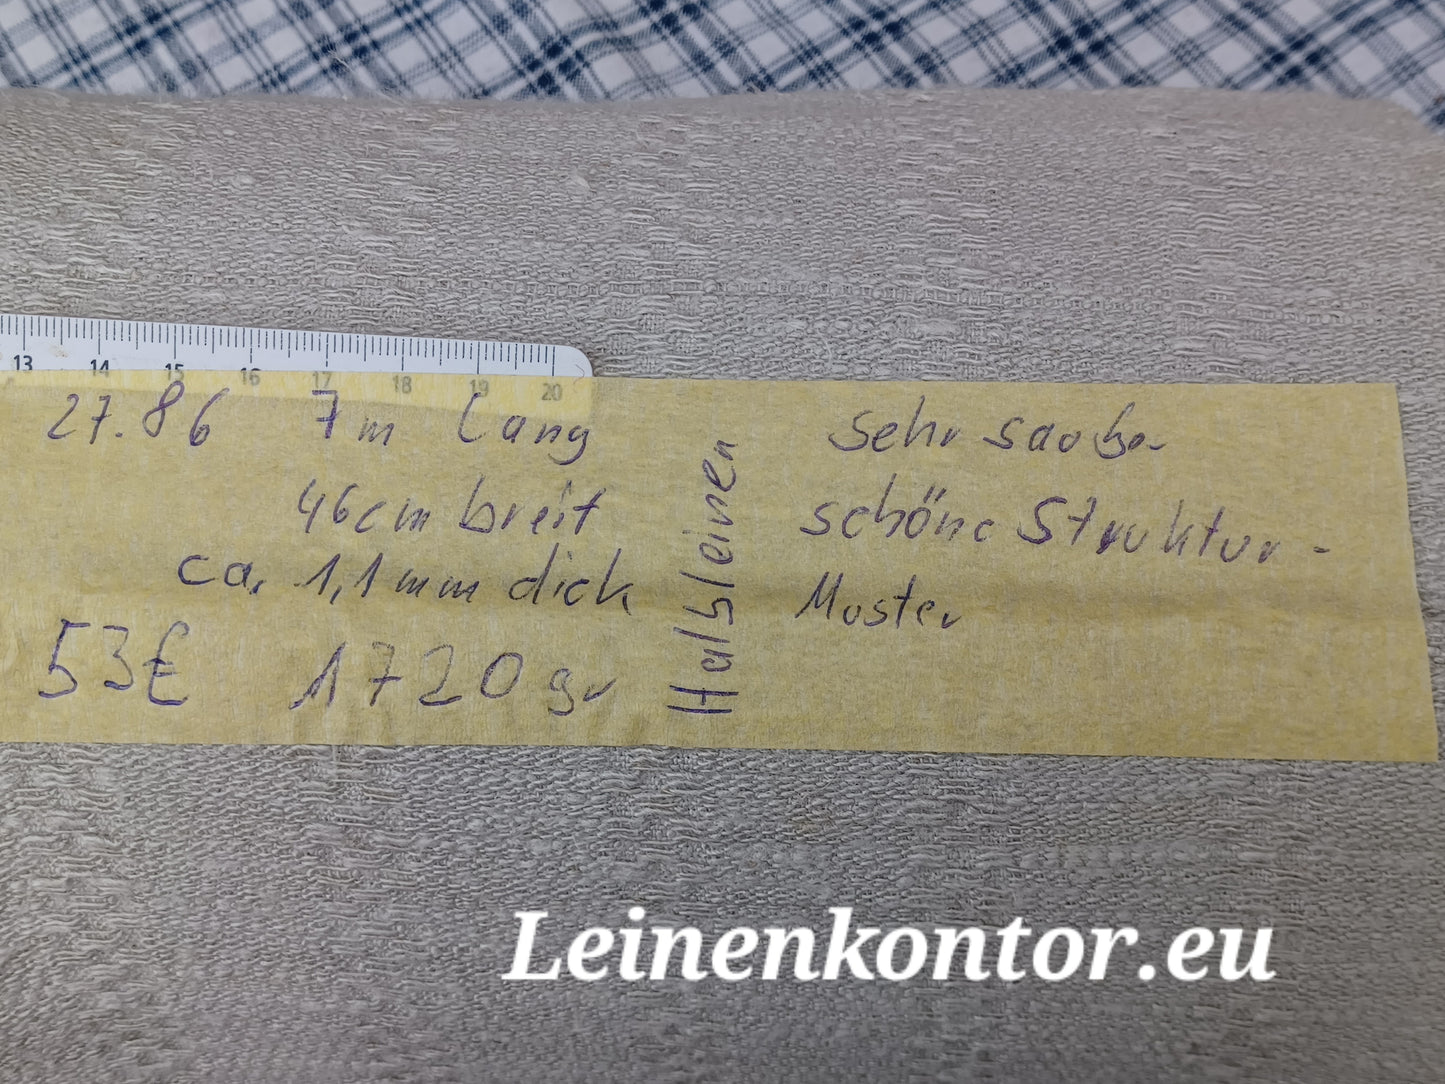 13 14 15 16 17 18 19 20
27.86 7m lang
46cm breit
ca. 1,1mm dick
53€ 1720gr
Halbleinen
sehr sauber
schöne Struktur-
Muster
Leinenkontor.eu